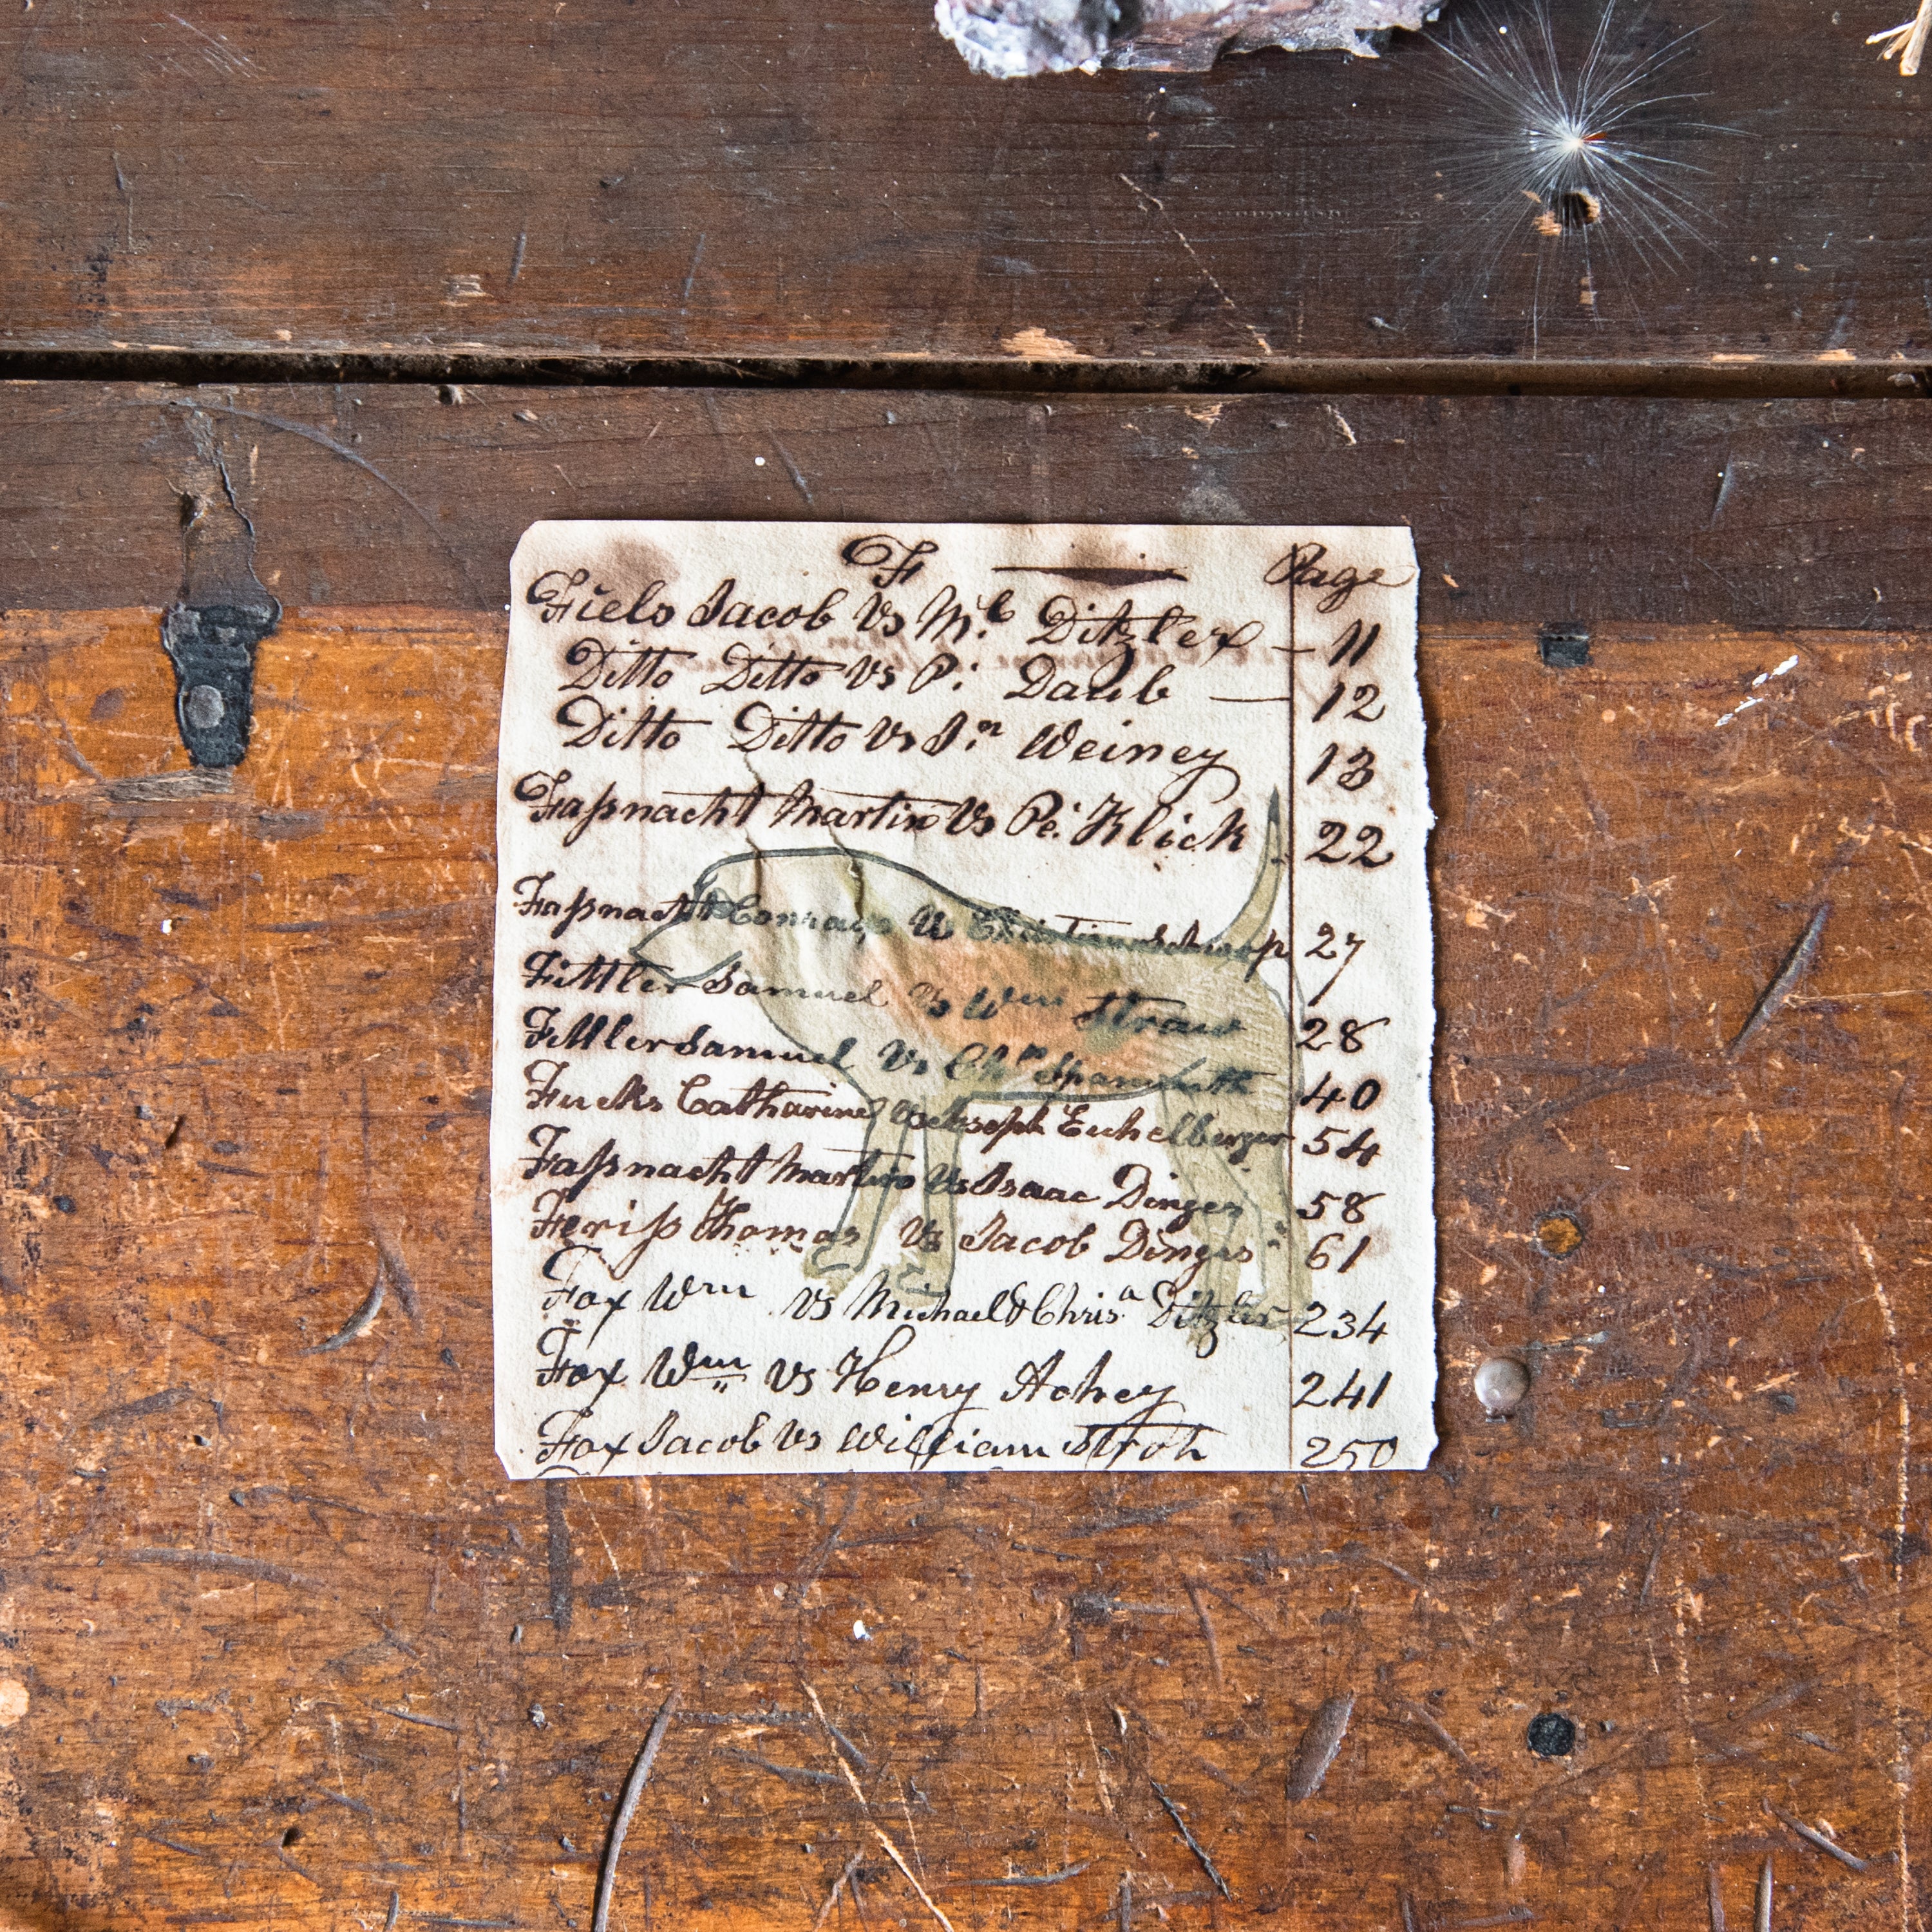 F Page
Fiels Jacob Vs Ml. Ditzler 11
Ditto Ditto Vs P: Daub 12
Ditto Ditto Vs Jn. Weiney 13
Faſsnacht Martin Vs Pe: Klick 22
Faſsnacht Conrad Vs Christian 27
Fittler Samuel Vs Wm Straw 28
Fittler Samuel Vs 40
Fucks Catharine Vs Joseph Eichelberger 54
Faſsnacht Martin Vs Isaac Dinges 58
Feriſs Thomas Vs Jacob Dinges 61
Fox Wm vs Michael & Chrisa Ditzler 234
Fox Wm vs Henry Achey 241
Fox Jacob Vs William Stroh 250